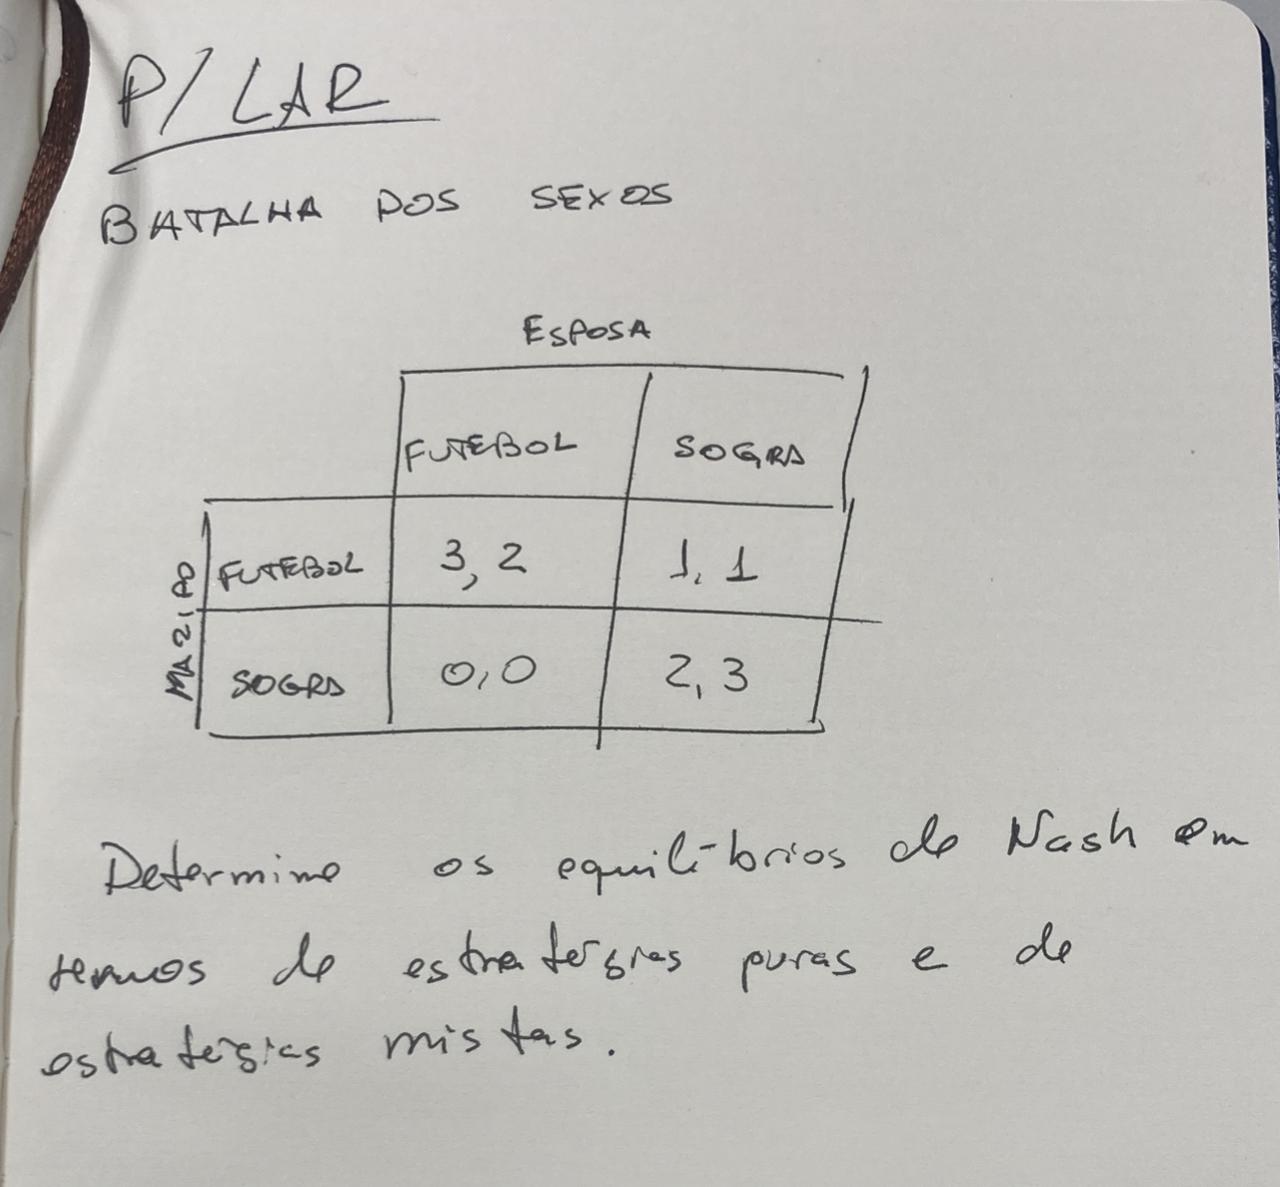 P/ LAR
BATALHA DOS SEXOS
ESPOSA
FUTEBOL SOGRA
MARIDO
FUTEBOL 3, 2 1, 1
SOGRA 0, 0 2, 3
Determine os equilíbrios de Nash em
termos de estratégias puras e de
estratégias mistas.